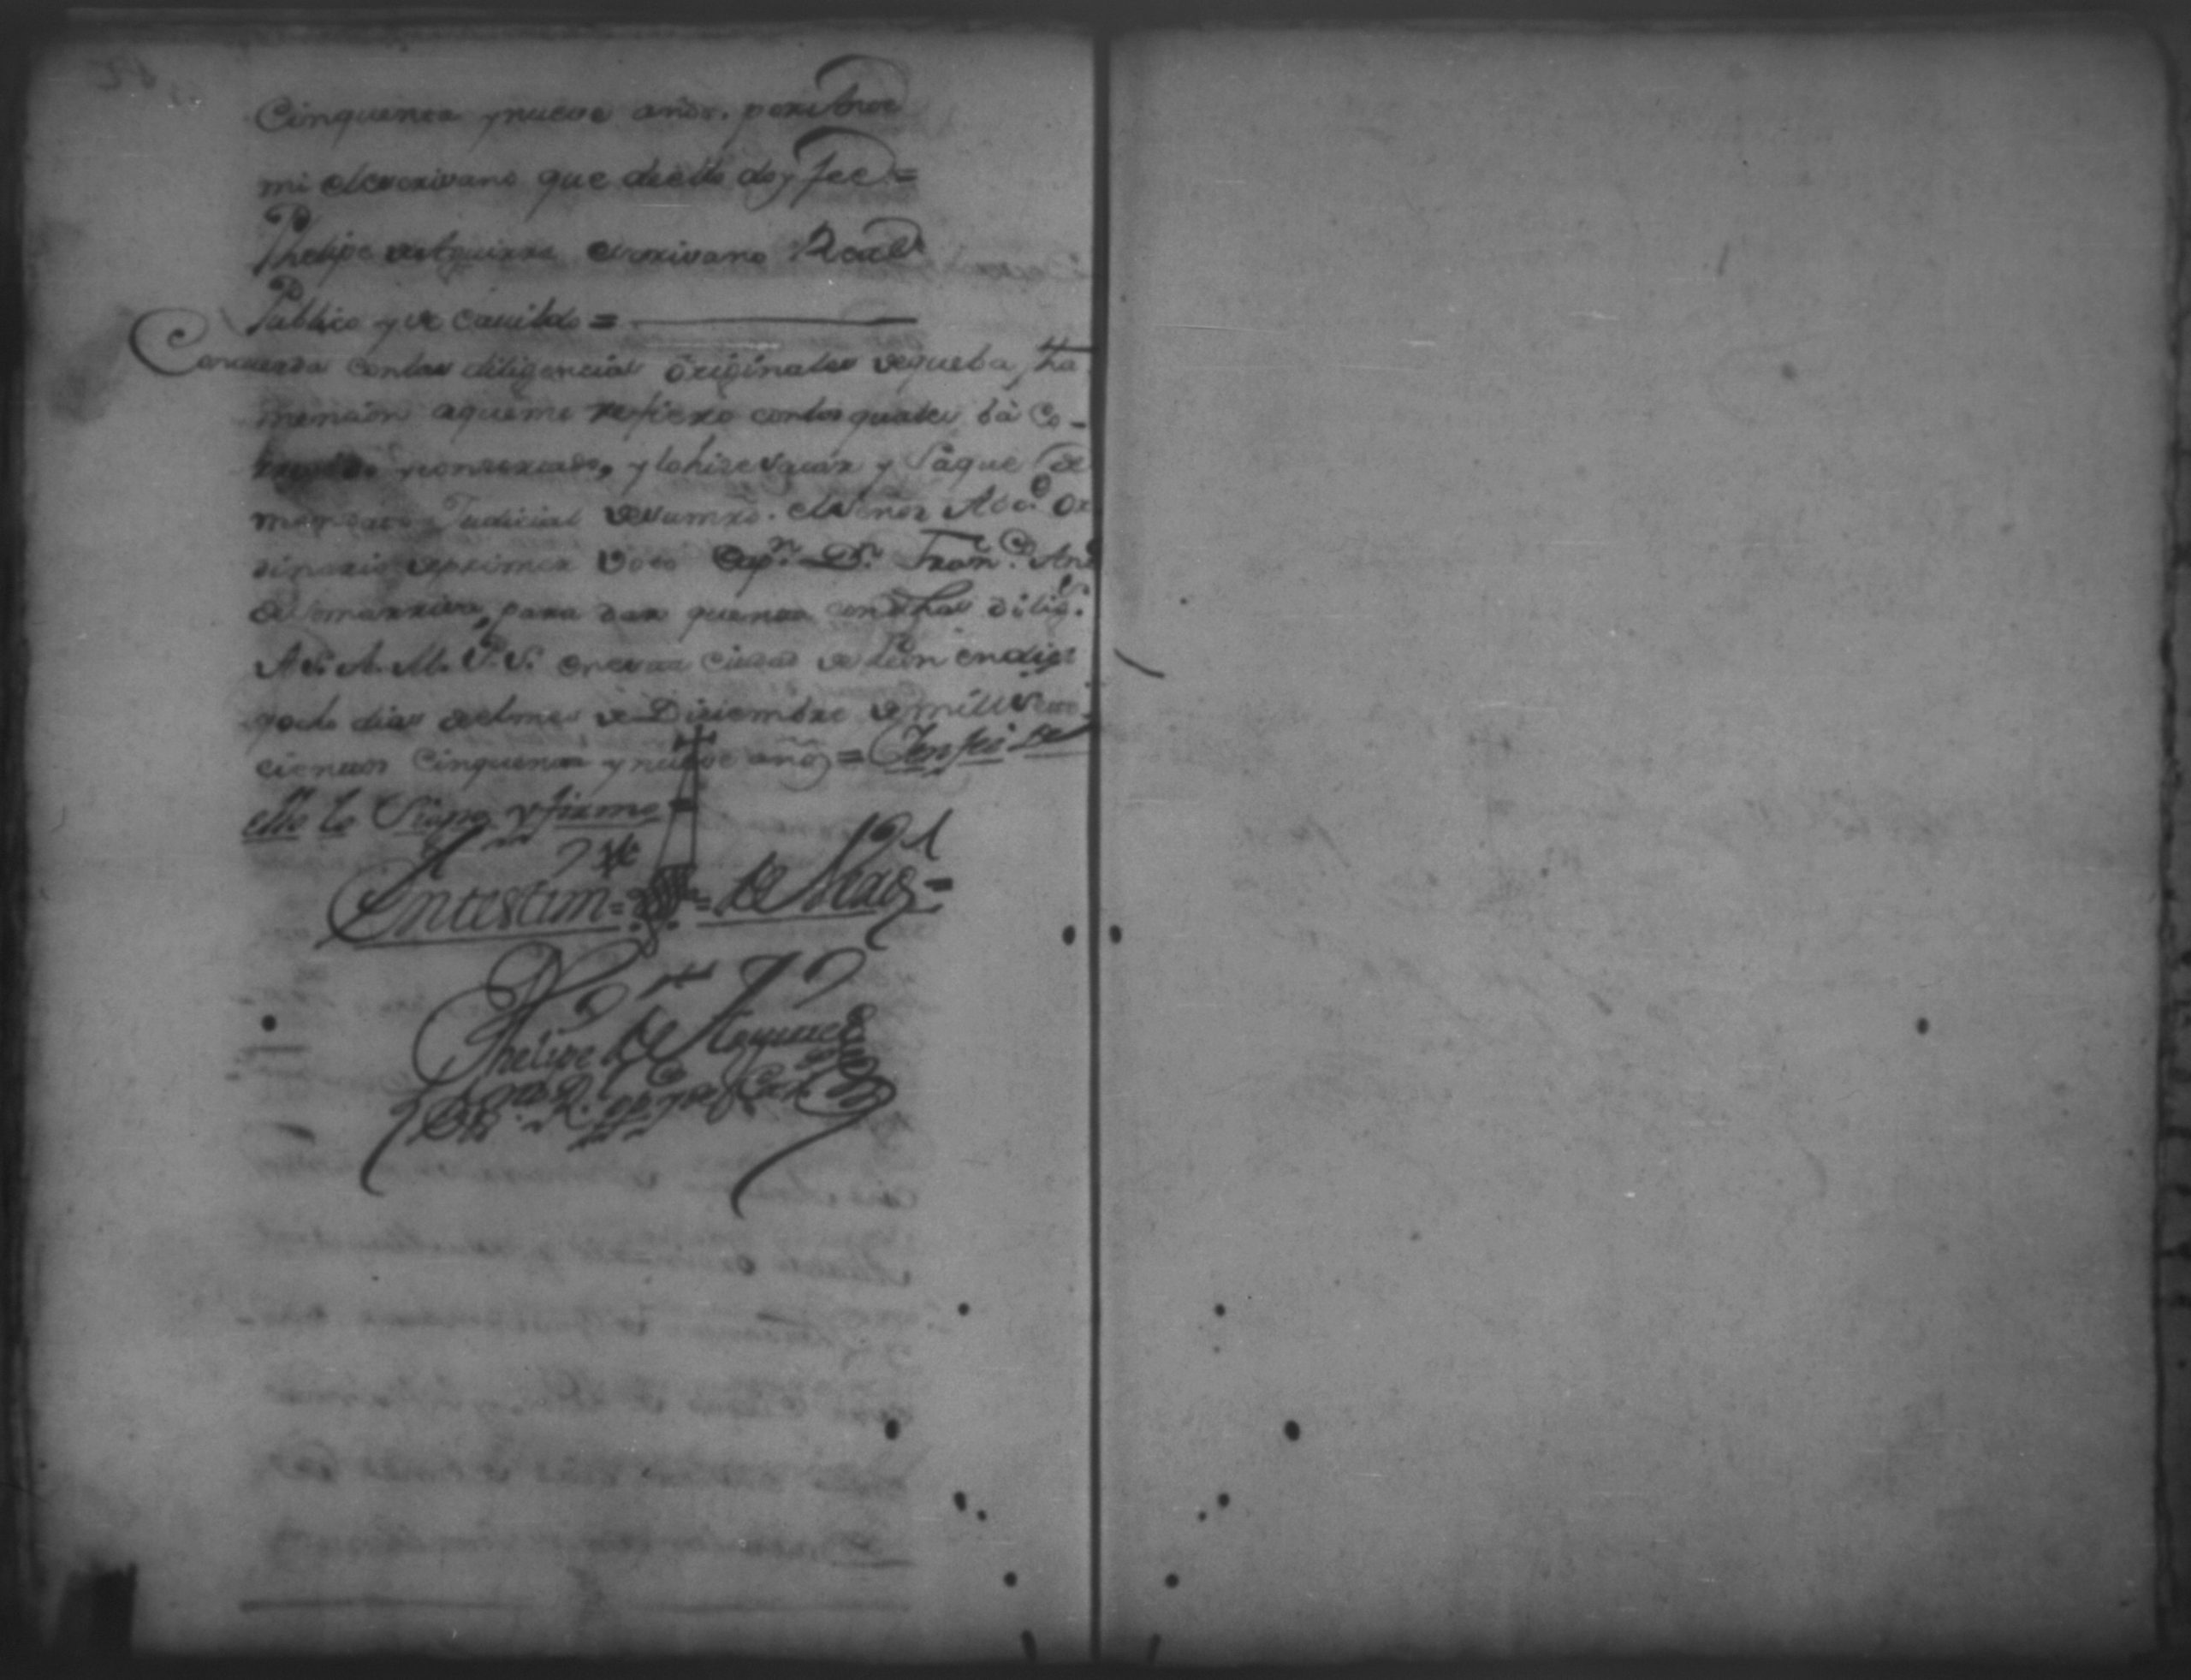 Cinquenta y nueve años. por Anōe
mi el escrivano que de ello doy fee =
Phelipe de Aguirre escrivano Real
Publico y de Cavildo =
Concuerda con las diligencias originales de que ba fha
mencion a que me refiero con los quales bá Co-
y consertado, y lo hize sacar y Saque de
mandato Judicial de su mrd. el Señor Alcᵉ Or
dinario de primer Voto Capⁿ Dⁿ Franᶜᵒ Anᵗ
de para dar quenta con dhas diligˢ
A S. A. M. P. S. en esta Ciudad de León en diez
y ocho dias del mes de Diciembre de mill Sete-
cientos Cinquenta y nueve años = En fee de
ello lo Signo y firmo =
En testim = = de Verd =
Phelipe de Aguirre